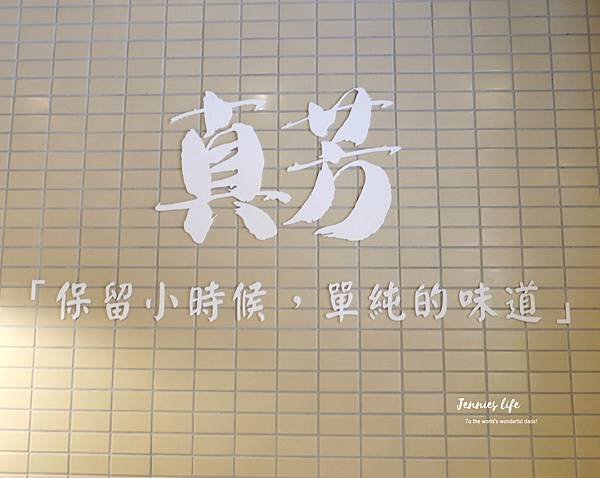 真芳
「保留小時候，單純的味道」
Jennies life
To the world's wonderful dads!